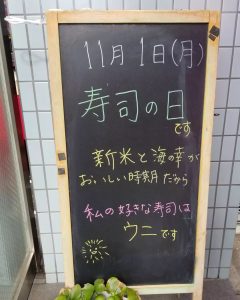 11月1日(月)
寿司の日
です
新米と海の幸が
おいしい時期だから
私の好きな寿司は
ウニです